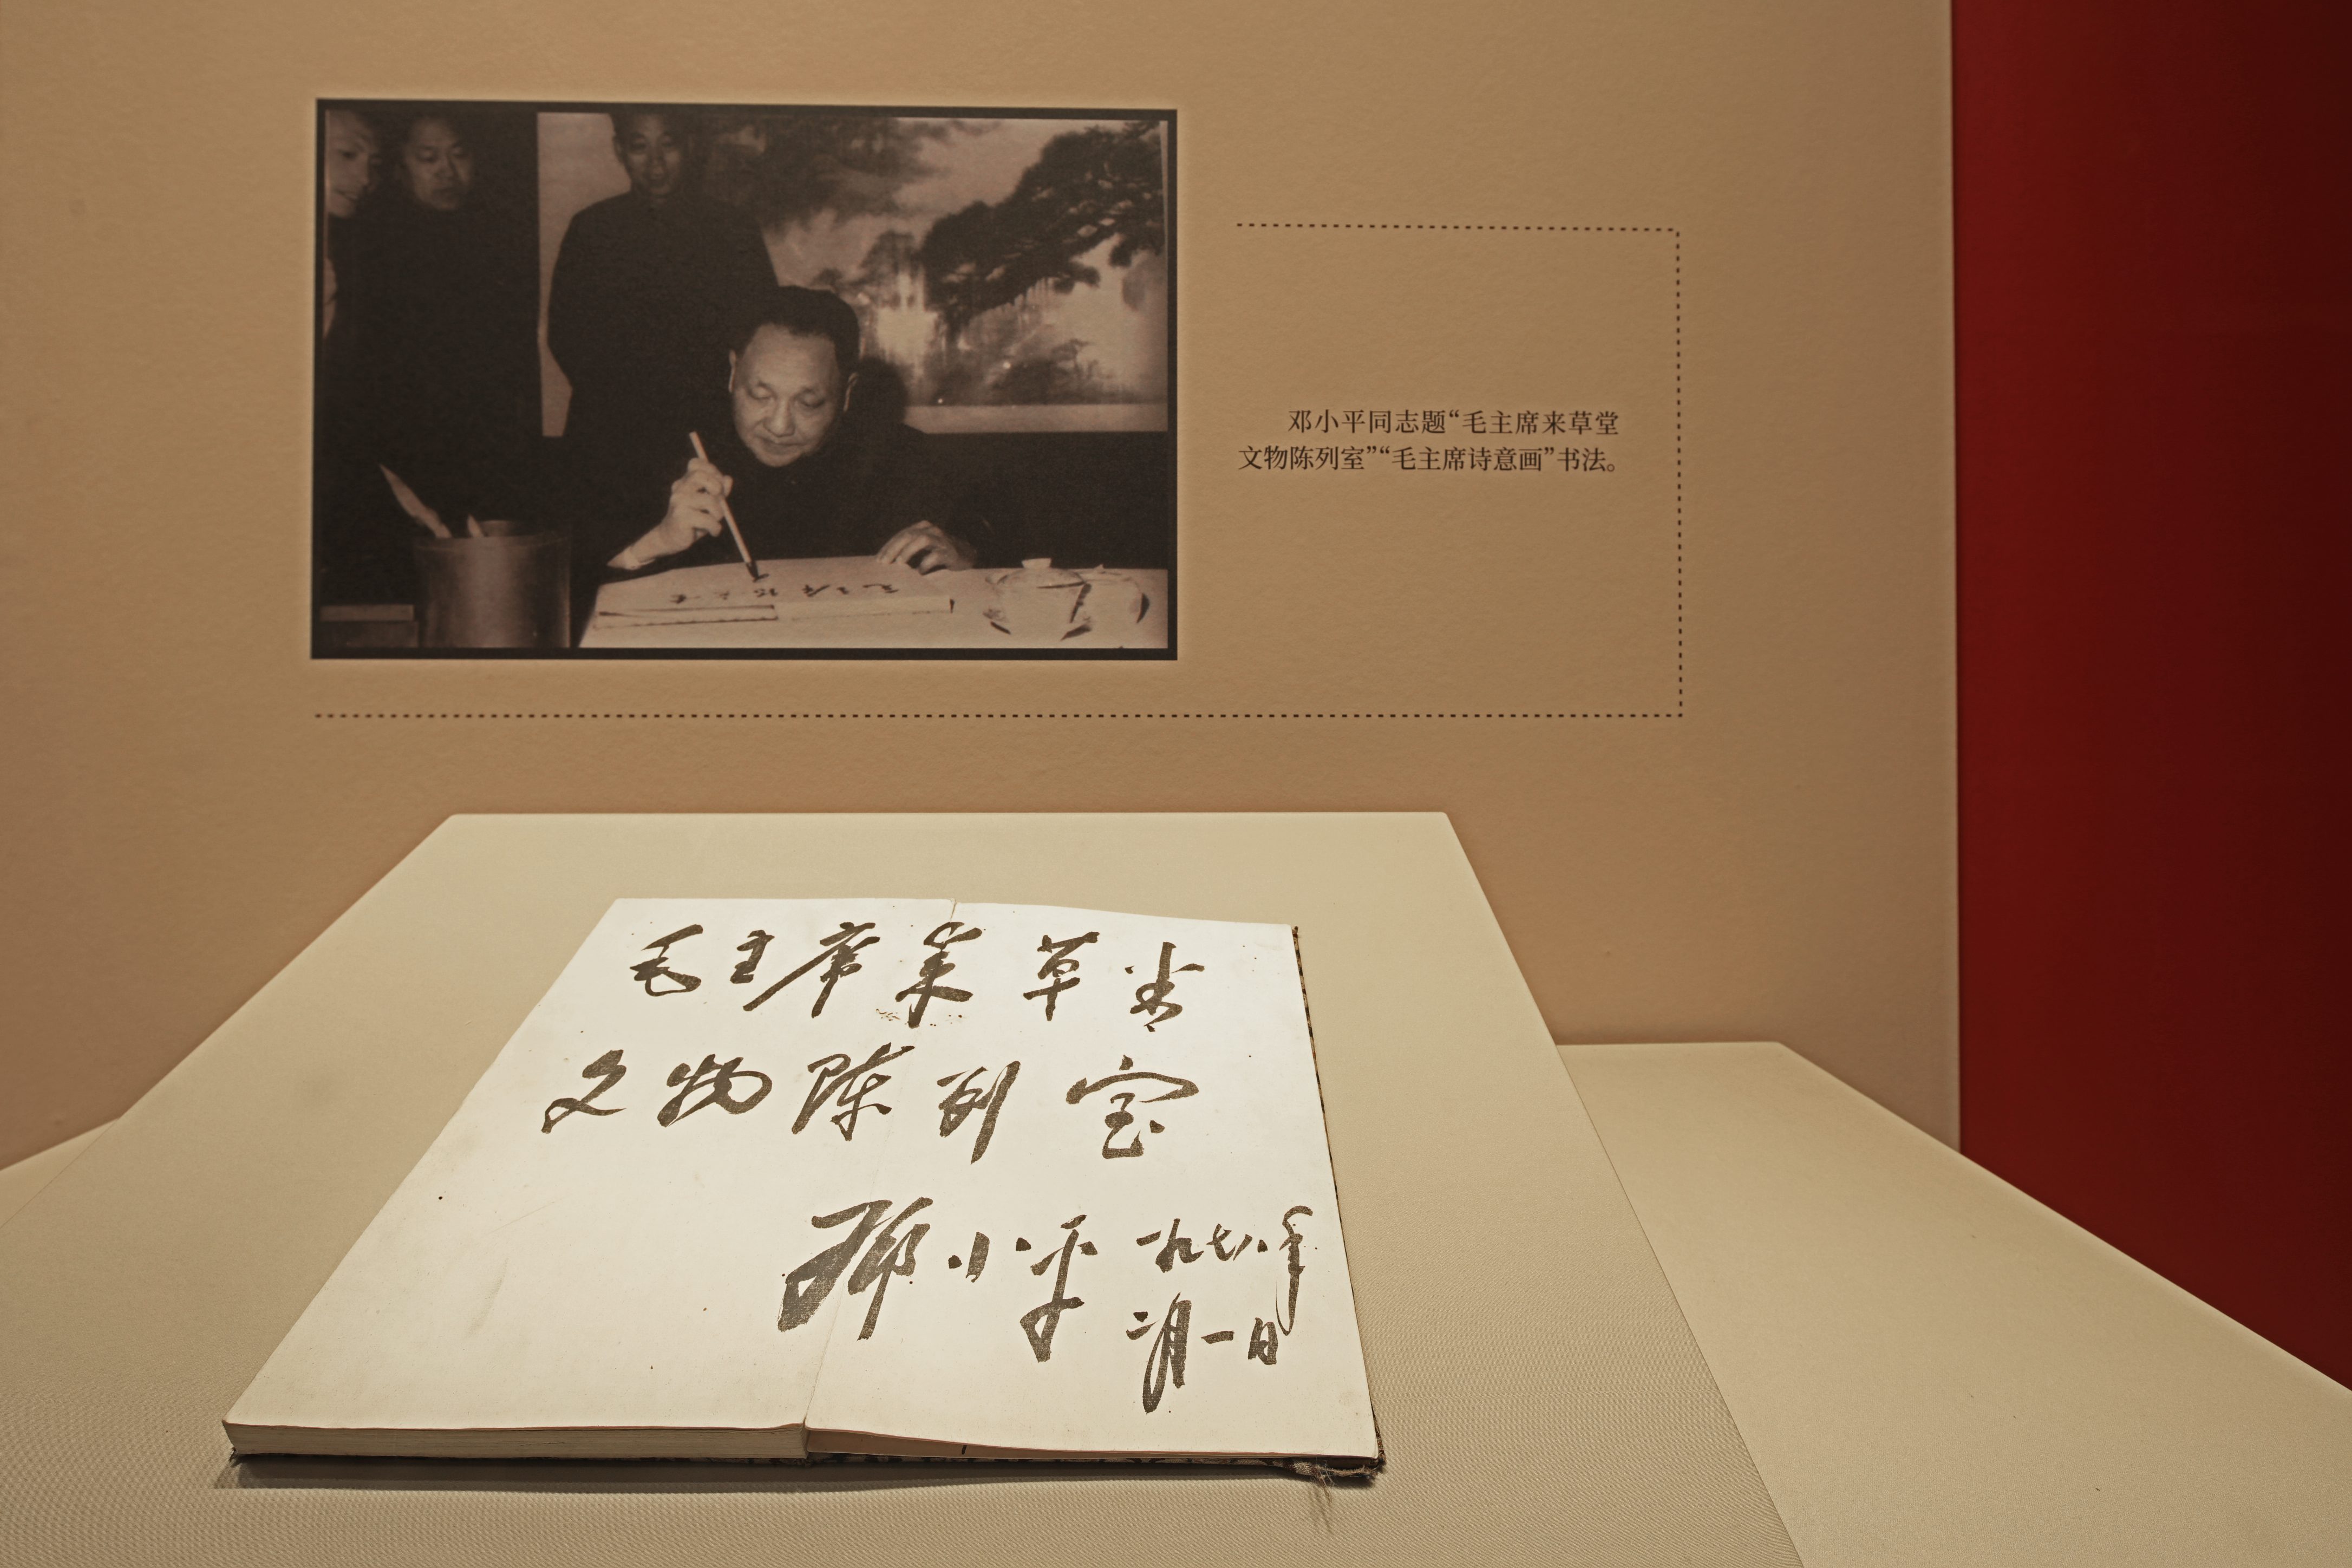 邓小平同志题“毛主席来草堂
文物陈列室”“毛主席诗意画”书法。
毛主席来草堂
文物陈列室
邓小平 一九七八年
二月一日